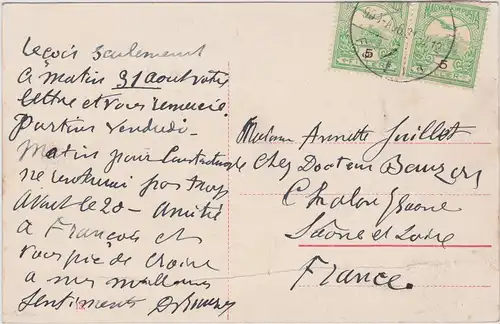 Reçois seulement
ce matin 31 aout votre
lettre et vous remercie.
Partirai vendredi
matin pour Constantinople
ne reviendrai pas trop
avant le 20 - amitié
à François et
vous prie de croire
à mes meilleurs
sentiments
MAGYAR KIR. POSTA
5 5
Madame Annette Juillet
Chez Docteur Bauzon
Chalon s/Saone
Saône et Loire
France.